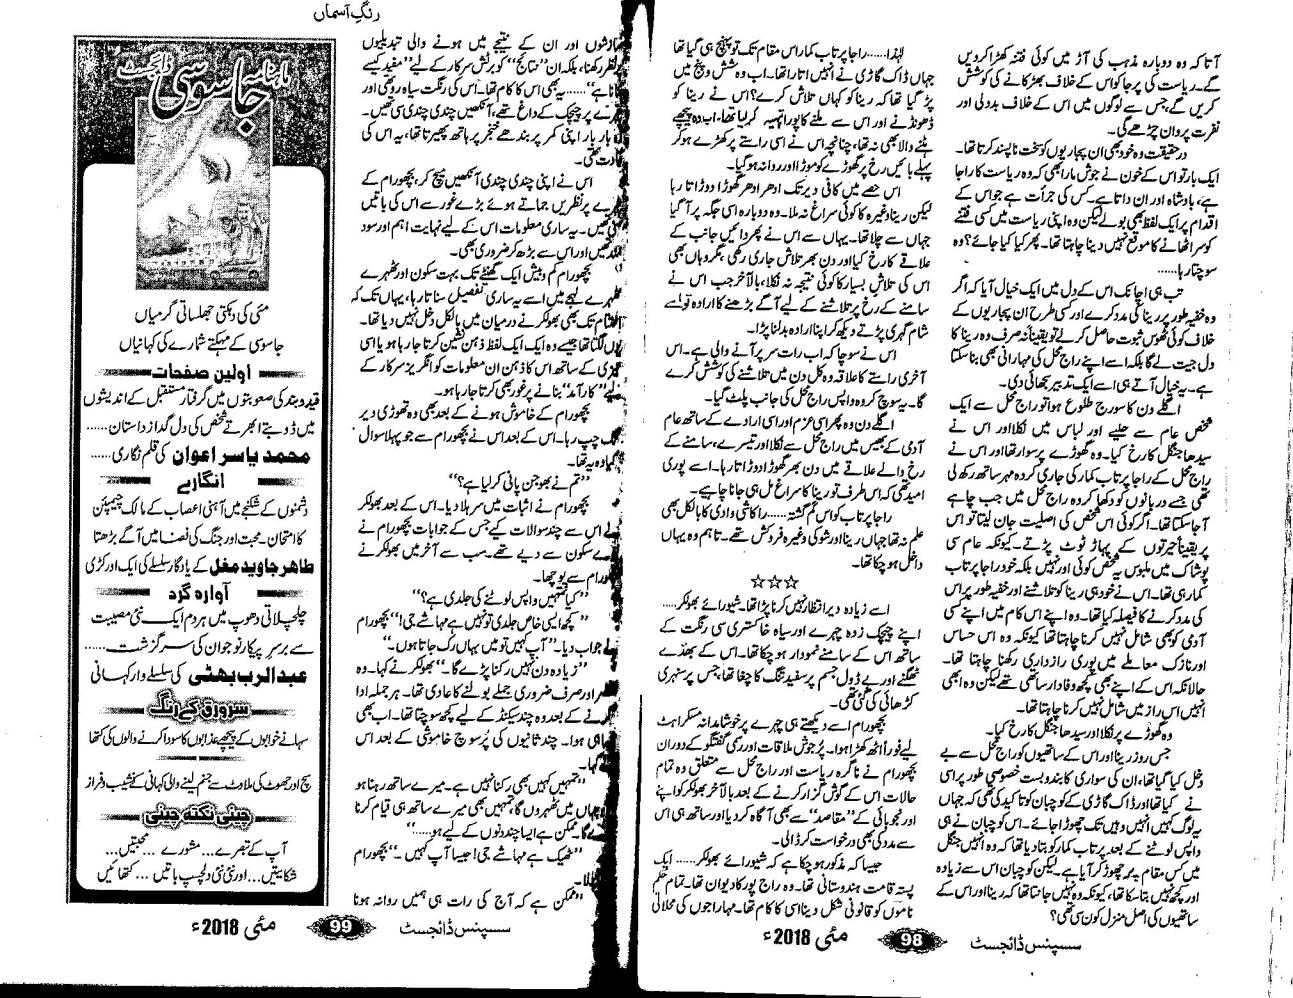 آتا کہ وہ دوبارہ مذہب کی آڑ میں کوئی فتنہ کھڑا کردیں
گے۔ ریاست کی پرجا کو اس کے خلاف بھڑکانے کی کوشش
کریں گے، جس سے لوگوں میں اس کے خلاف بددلی اور
نفرت پروان چڑھے گی۔
درحقیقت وہ خود بھی ان پجاریوں کو سخت ناپسند کرتا تھا۔
ایک بار تو اس کے خون نے جوش مارا بھی کہ وہ ریاست کا راجا
ہے، بادشاہ اور ان داتا ہے۔ کس کی جرأت ہے جو اس کے
اقدام پر ایک لفظ بھی بولے لیکن وہ اپنی ریاست میں کسی فتنے
کو سر اٹھانے کا موقع نہیں دینا چاہتا تھا۔ پھر کیا کیا جائے؟ وہ
سوچتا رہا......
تب ہی اچانک اس کے دل میں ایک خیال آیا کہ اگر
وہ خفیہ طور پر رینا کی مدد کرے اور کسی طرح ان پجاریوں کے
خلاف کوئی ٹھوس ثبوت حاصل کرلے تو یقیناً نہ صرف وہ رینا کا
دل جیت لے گا بلکہ اسے اپنے راج محل کی مہارانی بھی بنا سکتا
ہے۔ یہ خیال آتے ہی اسے ایک تدبیر سجھائی دی۔
اگلے دن کا سورج طلوع ہوا تو راج محل سے ایک
شخص عام سے حلیے اور لباس میں نکلا اور اس نے
سیدھا جنگل کا رخ کیا۔ وہ گھوڑے پر سوار تھا اور اس نے
راج محل کے راجا پرتاب کمار کی جاری کردہ مہر ساتھ رکھ لی
تھی جسے دربانوں کو دکھا کر وہ راج محل میں جب چاہے
آ جا سکتا تھا۔ اگر کوئی اس شخص کی اصلیت جان لیتا تو اس
پر یقیناً حیرتوں کے پہاڑ ٹوٹ پڑتے۔ کیونکہ عام سی
پوشاک میں ملبوس یہ شخص کوئی اور نہیں بلکہ خود راجا پرتاب
کمار ہی تھا۔ اس نے خود ہی رینا کو تلاشنے اور خفیہ طور پر اس
کی مدد کرنے کا فیصلہ کیا تھا۔ وہ اپنے اس کام میں اپنے کسی
آدمی کو بھی شامل نہیں کرنا چاہتا تھا کیونکہ وہ اس حساس
اور نازک معاملے میں پوری رازداری رکھنا چاہتا تھا۔
حالانکہ اس کے اپنے بھی کچھ وفادار ساتھی تھے لیکن وہ ابھی
انہیں اس راز میں شامل نہیں کرنا چاہتا تھا۔
وہ گھوڑے پر نکلا اور سیدھا جنگل کا رخ کیا۔
جس روز رینا اور اس کے ساتھیوں کو راج محل سے بے
دخل کیا گیا تھا، ان کی سواری کا بندوبست خصوصی طور پر اسی
نے کیا تھا اور ڈاک گاڑی کے کوچبان کو تاکید کی تھی کہ جہاں
یہ لوگ کہیں انہیں وہیں تک چھوڑا جائے۔ اس کوچبان نے ہی
واپس لوٹنے کے بعد پرتاب کمار کو بتا دیا تھا کہ وہ انہیں جنگل
میں کس مقام پر چھوڑ کر آیا ہے۔ لیکن کوچبان اس سے زیادہ
اور کچھ نہیں بتا سکا تھا، کیونکہ وہ نہیں جانتا تھا کہ رینا اور اس کے
ساتھیوں کی اصل منزل کون سی تھی؟
لہٰذا...... راجا پرتاب کمار اس مقام تک تو پہنچ ہی گیا تھا
جہاں ڈاک گاڑی نے انہیں اتارا تھا۔ اب وہ شش و پنج میں
پڑ گیا تھا کہ رینا کو کہاں تلاش کرے؟ اس نے رینا کو
ڈھونڈنے اور اس سے ملنے کا پورا تہیہ کرلیا تھا، اب وہ پیچھے
ہٹنے والا بھی نہ تھا، چنانچہ اس نے اسی راستے پر کھڑے ہوکر
پہلے بائیں رخ پر گھوڑے کو موڑا اور روانہ ہوگیا۔
اس حصے میں کافی دیر تک ادھر ادھر گھوڑا دوڑاتا رہا
لیکن رینا وغیرہ کا کوئی سراغ نہ ملا۔ وہ دوبارہ اسی جگہ پر آگیا
جہاں سے چلا تھا۔ یہاں سے اس نے پھر دائیں جانب کے
علاقے کا رخ کیا اور دن بھر تلاش جاری رکھی، مگر وہاں بھی
اس کی تلاش بسیار کا کوئی نتیجہ نہ نکلا، بالآخر جب اس نے
سامنے کے رخ پر تلاشنے کے لیے آگے بڑھنے کا ارادہ تو اسے
شام گہری پڑتے دیکھ کر اپنا ارادہ بدلنا پڑا۔
اس نے سوچا کہ اب رات سر پر آنے والی ہے۔ اس
آخری راستے کا علاقہ وہ کل دن میں تلاشنے کی کوشش کرے
گا۔ یہ سوچ کر وہ واپس راج محل کی جانب پلٹ گیا۔
اگلے دن وہ پھر اسی عزم اور اسی ارادے کے ساتھ عام
آدمی کے بھیس میں راج محل سے نکلا اور تیسرے، سامنے کے
رخ والے علاقے میں دن بھر گھوڑا دوڑاتا رہا۔ اسے پوری
امید تھی کہ اس طرف تو رینا کا سراغ مل ہی جانا چاہیے۔
راجا پرتاب کو اس گم گشتہ...... راکاشی وادی کا بالکل بھی
علم نہ تھا جہاں رینا اور شوکی وغیرہ فروکش تھے۔ تاہم وہ یہاں
داخل ہوچکا تھا۔
☆☆☆
اسے زیادہ دیر انتظار نہیں کرنا پڑا تھا۔ شیورائے بھولکر......
اپنے چیچک زدہ چہرے اور سیاہ خاکستری سی رنگت کے
ساتھ اس کے سامنے نمودار ہوچکا تھا۔ اس کے بھدے
ٹھگنے اور بے ڈول جسم پر سفید رنگ کا چغا تھا، جس پر سنہری
کڑھائی کی گئی تھی۔
بچھورام اسے دیکھتے ہی چہرے پر خوشامدانہ مسکراہٹ
لیے فوراً اٹھ کھڑا ہوا۔ پُرجوش ملاقات اور رسمی گفتگو کے دوران
بچھورام نے ناگرہ ریاست اور راج محل سے متعلق وہ تمام
حالات اس کے گوش گزار کرنے کے بعد بالآخر بھولکر کو اپنے
اور نجوبائی کے ”مقاصد“ سے بھی آگاہ کردیا اور ساتھ ہی اس
سے مدد کی بھی درخواست کر ڈالی۔
جیسا کہ مذکور ہوچکا ہے کہ شیورائے بھولکر...... ایک
پستہ قامت ہندوستانی تھا۔ وہ راج پور کا دیوان تھا۔ تمام حکم
ناموں کو قانونی شکل دینا اسی کا کام تھا۔ مہاراجوں کی محلاتی
سسپنس ڈائجسٹ
98
مئی 2018ء
رنگِ آسماں
سازشوں اور ان کے نتیجے میں ہونے والی تبدیلیوں
نظر رکھنا، بلکہ ان ”نتائج“ کو برٹش سرکار کے لیے ”مفید کیسے
بنانا ہے“...... یہ بھی اس کا کام تھا۔ اس کی رنگت سیاہ رو تھی اور
چہرے پر چیچک کے داغ تھے، آنکھیں چندی چندی سی تھیں۔
وہ بار بار اپنی کمر پر بندھے خنجر پر ہاتھ پھیرتا تھا، یہ اس کی
عادت تھی۔
اس نے اپنی چندی چندی آنکھیں میچ کر، بچھورام کے
چہرے پر نظریں جماتے ہوئے بڑے غور سے اس کی باتیں
سنی تھیں۔ یہ ساری معلومات اس کے لیے نہایت اہم اور سود
مند تھیں اور اس سے بڑھ کر ضروری بھی۔
بچھورام کم و بیش ایک گھنٹے تک بہت سکون اور ٹھہرے
ٹھہرے لہجے میں اسے یہ ساری تفصیل سناتا رہا، یہاں تک کہ
اختتام تک بھی بھولکر نے درمیان میں بالکل دخل نہیں دیا تھا۔
یوں لگتا تھا جیسے وہ ایک ایک لفظ ذہن نشین کرتا جا رہا ہو یا اسی
گھڑی کے ساتھ اس کا ذہن ان معلومات کو انگریز سرکار کے
لیے ”کارآمد“ بنانے پر غور بھی کرتا جا رہا ہو۔
بچھورام کے خاموش ہونے کے بعد بھی وہ تھوڑی دیر
تک چپ رہا۔ اس کے بعد اس نے بچھورام سے جو پہلا سوال
کیا وہ یہ تھا۔
”تم نے بھوجن پانی کرلیا ہے؟“
بچھورام نے اثبات میں سر ہلا دیا۔ اس کے بعد بھولکر
نے اس سے چند سوالات کیے جس کے جوابات بچھورام نے
بڑے سکون سے دیے تھے۔ سب سے آخر میں بھولکر نے
بچھورام سے پوچھا۔
”کیا تمہیں واپس لوٹنے کی جلدی ہے؟“
”کچھ ایسی خاص جلدی تو نہیں ہے مہاشے جی!“ بچھورام
نے جواب دیا۔ ”آپ کہیں تو میں یہاں رک جاتا ہوں۔“
”زیادہ دن نہیں رکنا پڑے گا۔“ بھولکر نے کہا۔ وہ
اور صرف ضروری جملے بولنے کا عادی تھا۔ ہر جملہ ادا
کرنے کے بعد وہ چند سیکنڈ کے لیے کچھ سوچتا تھا۔ اب بھی
ایسا ہی ہوا۔ چند ثانیوں کی پُرسوچ خاموشی کے بعد اس
نے کہا۔
”تمہیں کہیں بھی رکنا نہیں ہے۔ میرے ساتھ رہنا ہو
جہاں میں ٹھہروں گا، تمہیں بھی میرے ساتھ ہی قیام کرنا
ہوگا۔ ممکن ہے ایسا چند دنوں کے لیے ہو......“
”ٹھیک ہے مہاشے جی! جیسا آپ کہیں۔“ بچھورام
بولا۔
”ممکن ہے کہ آج کی رات ہی ہمیں روانہ ہونا
ماہنامہ
جاسوسی
ڈائجسٹ
مئی کی دہکتی جھلساتی گرمیاں
جاسوسی کے مہکتے شمارے کی کہانیاں
اولین صفحات
قید و بند کی صعوبتوں میں گرفتار مستقبل کے اندیشوں
میں ڈوبتے ابھرتے شخص کی دل گداز داستان......
محمد یاسر اعوان کی قلم نگاری......
انگارے
دشمنوں کے شکنجے میں آہنی اعصاب کے مالک چیمپئن
کا امتحان۔ محبت اور جنگ کی فضا میں آگے بڑھتا
طاہر جاوید مغل کے یادگار سلسلے کی ایک اور کڑی
آوارہ گرد
چلچلاتی دھوپ میں ہر دم ایک نئی مصیبت
سے برسرِ پیکار نوجوان کی سرگزشت......
عبدالرب بھٹی کی سلسلے وار کہانی
سرورق کے رنگ
سہانے خوابوں کے پیچھے عذابوں کا سودا کرنے والوں کی کتھا
سچ اور جھوٹ کی ملاوٹ سے جنم لینے والی کہانی کے نشیب و فراز
چینی نکتہ چینی
آپ کے تبصرے... مشورے... محبتیں...
شکایتیں... اور نئی نئی دلچسپ باتیں... کتھائیں
سسپنس ڈائجسٹ
99
مئی 2018ء